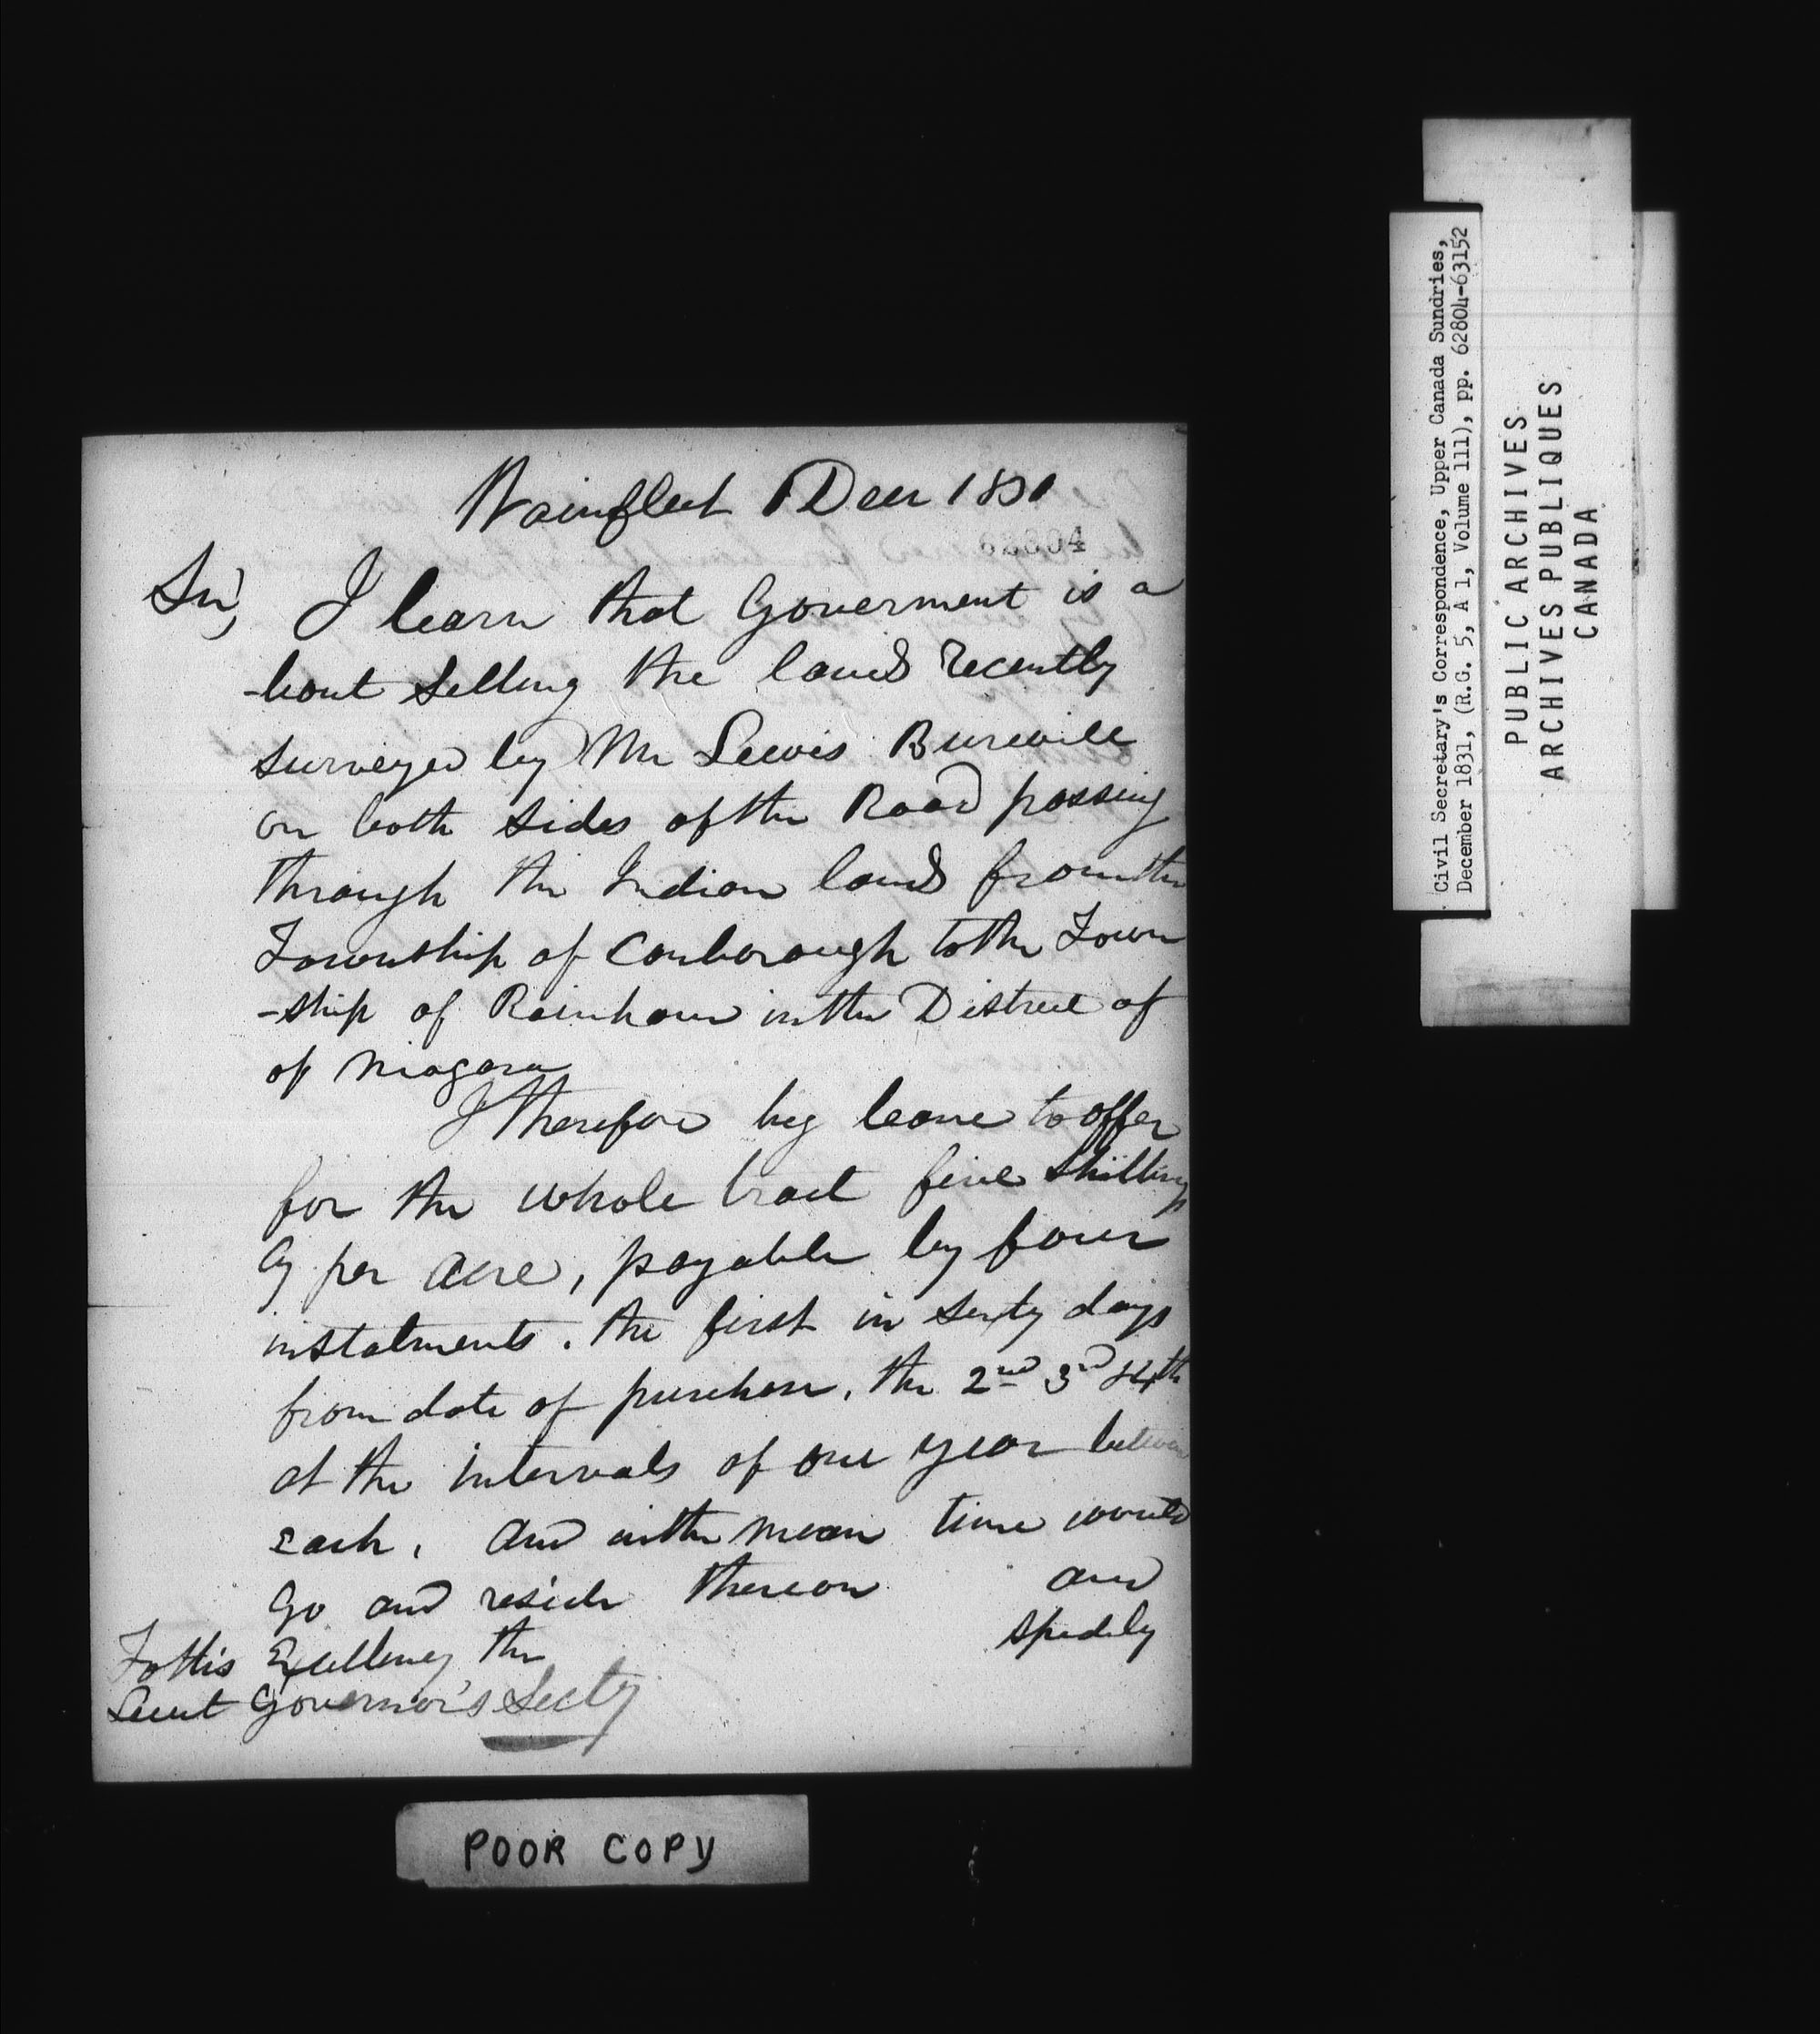 Wainfleet 1 Decr 1831
62804
Sir, I learn that Goverment is a
-bout selling the lands recently
surveyed by Mr Lewis Burwell
on both sides of the Road passing
through the Indian lands from the
Township of Canborough to the Town
-ship of Rainham in the District of
of Niagara
I therefore beg leave to offer
for the whole tract five shillings
Cy per acre, payable by four
instalments. the first in sixty days
from date of purchase, the 2nd 3rd &4th
at the intervals of one year between
Each, and in the mean time would
Go and reside thereon and
speedily
To His Excellency the
Lieut Governor's Secty
POOR COPY
Civil Secretary's Correspondence, Upper Canada Sundries,
December 1831, (R.G. 5, A 1, Volume 111), pp. 62804-63152
PUBLIC ARCHIVES
ARCHIVES PUBLIQUES
CANADA